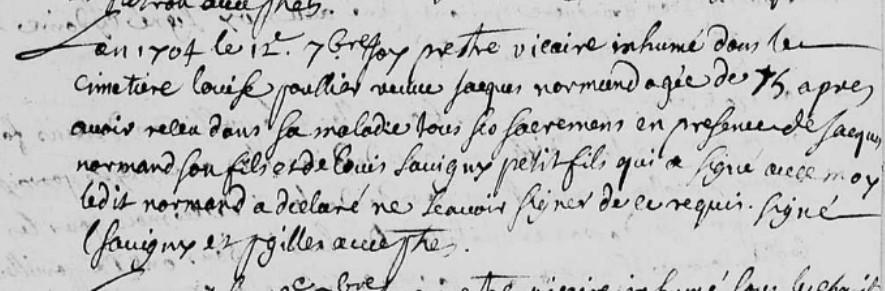 Lan 1704 le 12e. 7bre soy prestre vicaire inhumé dans le
cimetiere louise paullier veuve jacques normand agée de 75. apres
avoir receu dans sa maladie tous ses sacremens en presence de jacques
normand son fils et de Louis Savigny petit fils qui a signé avec moy
ledit normand a déclaré ne scavoir signer de ce requis. signé
Savigny et
vicaire inhumé